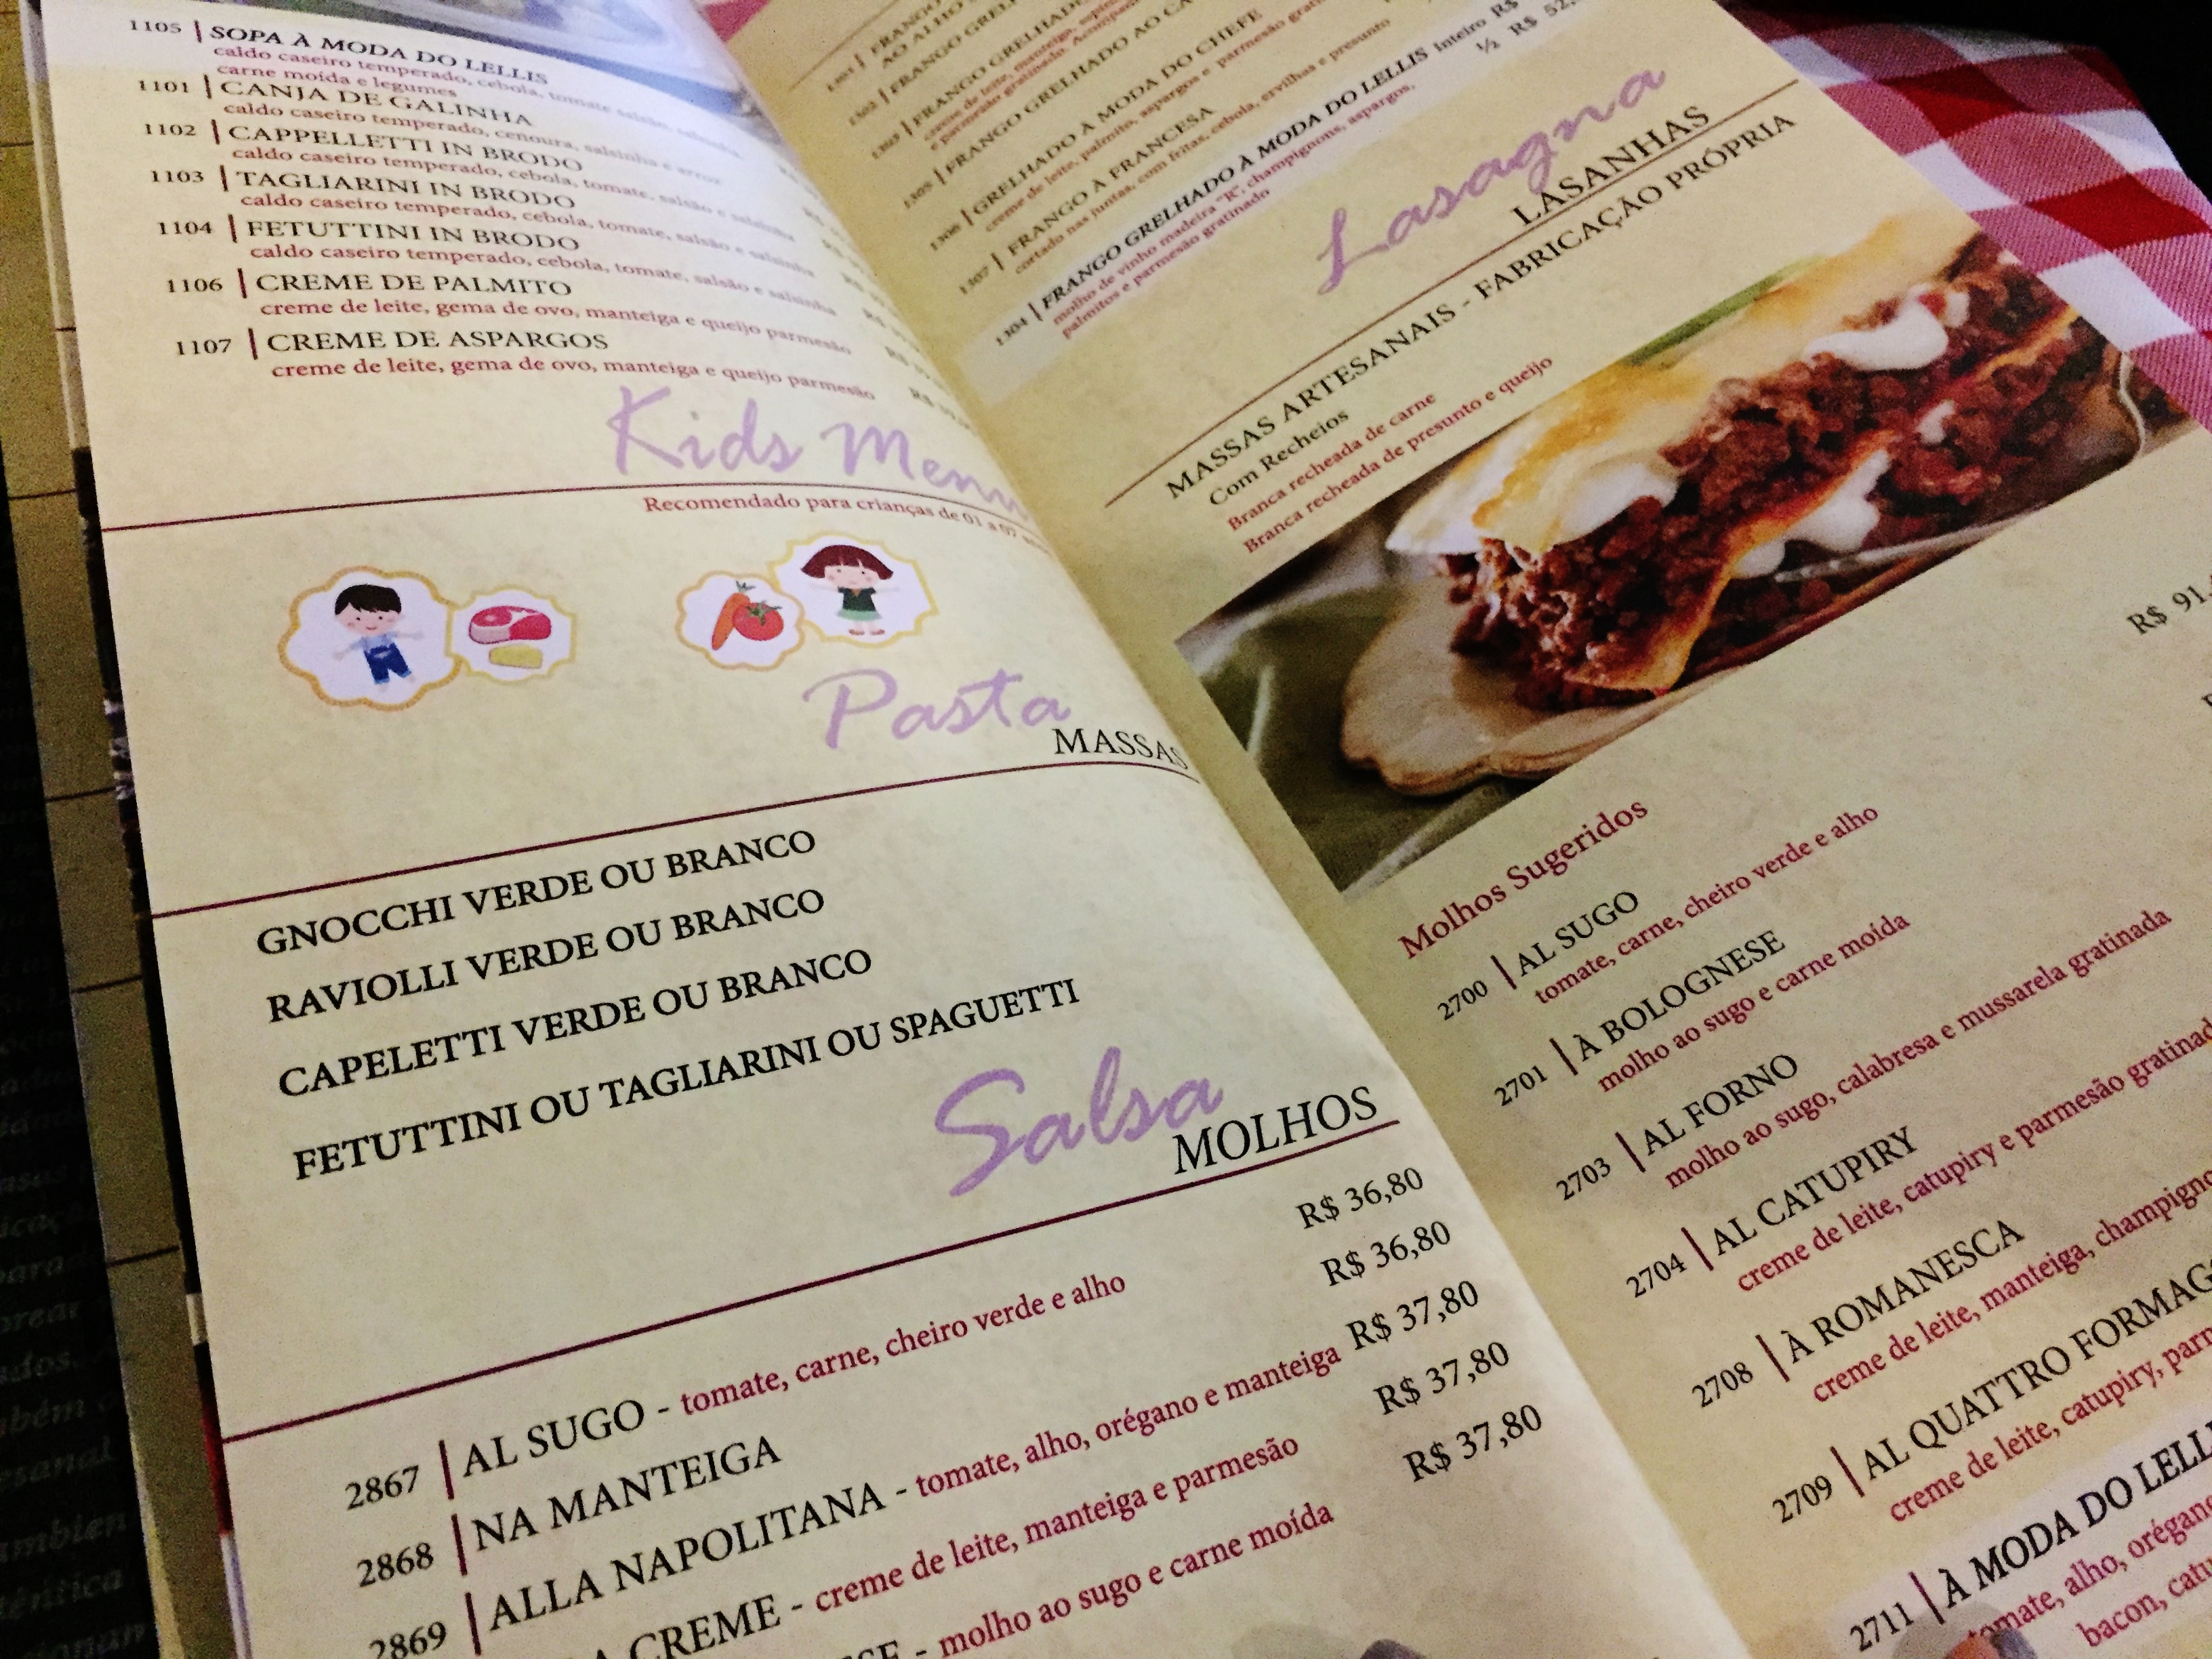 1105 | SOPA À MODA DO LELLIS
caldo caseiro temperado, cebola, tomate salsão, salsinha,
carne moída e legumes
1101 | CANJA DE GALINHA
caldo caseiro temperado, cenoura, salsinha e arroz
1102 | CAPPELLETTI IN BRODO
caldo caseiro temperado, cebola, tomate, salsão e salsinha
1103 | TAGLIARINI IN BRODO
caldo caseiro temperado, cebola, tomate, salsão e salsinha
1104 | FETUTTINI IN BRODO
caldo caseiro temperado, cebola, tomate, salsão e salsinha
1106 | CREME DE PALMITO
creme de leite, gema de ovo, manteiga e queijo parmesão
1107 | CREME DE ASPARGOS
creme de leite, gema de ovo, manteiga e queijo parmesão
Kids Menu
Recomendado para crianças de 01 a 07
Pasta
MASSAS
GNOCCHI VERDE OU BRANCO
RAVIOLLI VERDE OU BRANCO
CAPELETTI VERDE OU BRANCO
FETUTTINI OU TAGLIARINI OU SPAGUETTI
Salsa
MOLHOS
2867 | AL SUGO - tomate, carne, cheiro verde e alho R$ 36,80
2868 | NA MANTEIGA R$ 36,80
2869 | ALLA NAPOLITANA - tomate, alho, orégano e manteiga R$ 37,80
CREME - creme de leite, manteiga e parmesão R$ 37,80
ESE - molho ao sugo e carne moída R$ 37,80
FRANGO
AO ALHO
1302 | FRANGO GREL
1303 | FRANGO GRELHADO
creme de leite, manteiga,
e parmesão gratinado.
1305 | FRANGO GRELHADO AO
1306 | GRELHADO À MODA DO CHEFE
creme de leite, palmito, aspargos e parmesão
1307 | FRANGO À FRANCESA
cortado nas juntas, com fritas, cebola, ervilhas e presunto
1304 | FRANGO GRELHADO À MODA DO LELLIS Inteiro R$
½ R$ 52,
molho de vinho madeira "R", champignons, aspargos,
palmitos e parmesão gratinado
Lasagna
LASANHAS
MASSAS ARTESANAIS - FABRICAÇÃO PRÓPRIA
Com Recheios
Branca recheada de carne
Branca recheada de presunto e queijo
R$ 91,
Molhos Sugeridos
2700 | AL SUGO
tomate, carne, cheiro verde e alho
2701 | À BOLOGNESE
molho ao sugo e carne moída
2703 | AL FORNO
molho ao sugo, calabresa e mussarela gratinada
2704 | AL CATUPIRY
creme de leite, catupiry e parmesão gratinad
2708 | À ROMANESCA
creme de leite, manteiga, champigno
2709 | AL QUATTRO FORMAG
creme de leite, catupiry, parm
2711 | À MODA DO LELLI
tomate, alho, orégano
bacon, catu